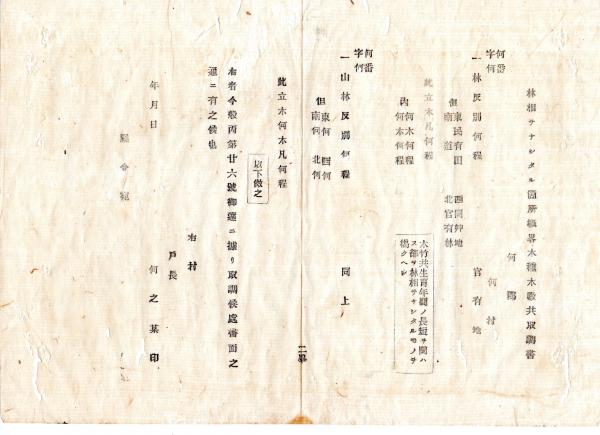 林相ヲナシタル箇所幅畧木種木數共取調書
何郡
何村
官有地
何番
字何
一林反別何程
但 東民有田 西同畔地
南道 北官有林
此立木凡何程
内 何木何程
何木何程
木竹共生育年間ノ長短ヲ問ハ
ス都テ林相ヲナシタルモノヲ
掲クヘシ
何番
字何
一山林反別何程 同上
但 東何 西何
南何 北何
此立木何木凡何程
以下倣之
右者今般丙第廿六號御達ニ據リ取調候處書面之
通ニ有之候也
右村
戸長
年月日 何之某印
縣令宛